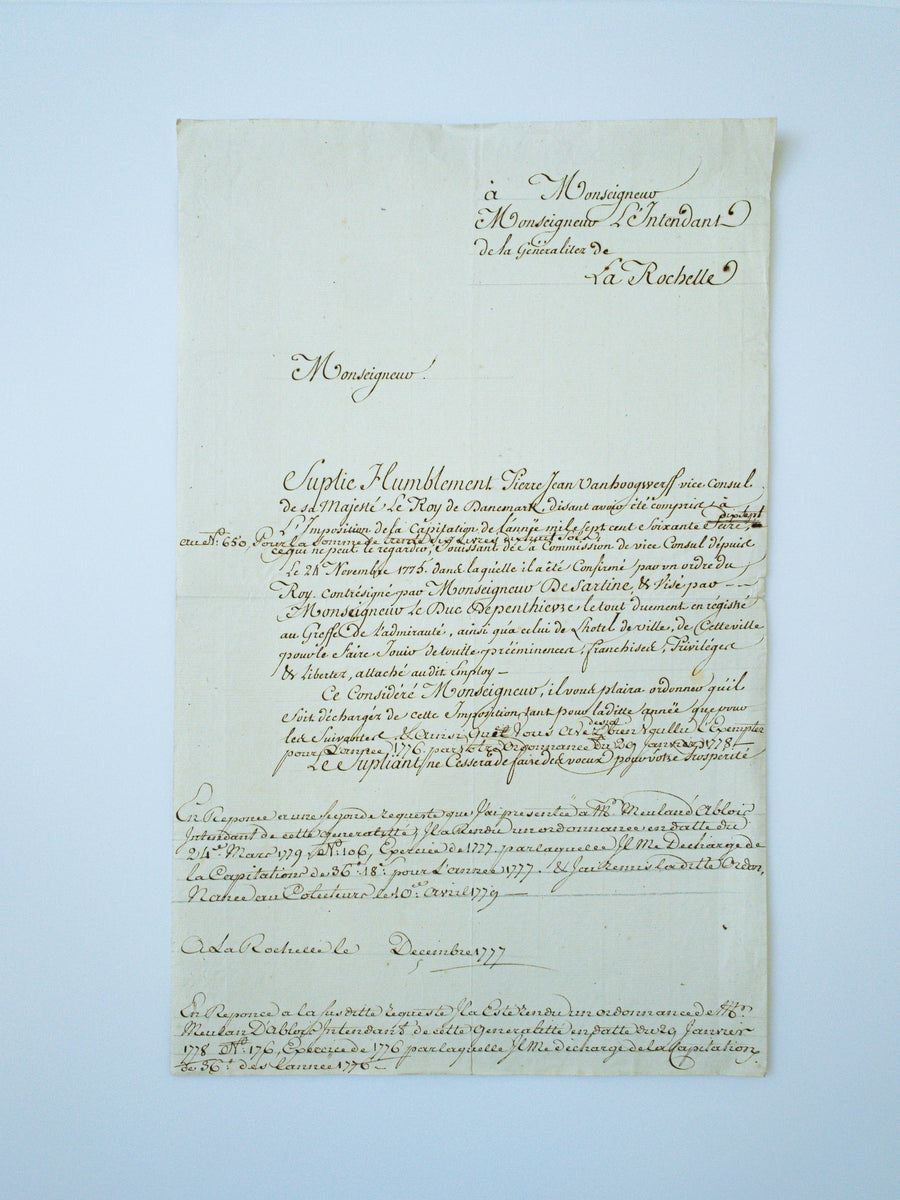 à Monseigneur
Monseigneur L'Intendant
de la Généralitez de
La Rochelle
Monseigneur.
Suplie Humblement Pierre Jean Vanhoogwerff vice Consul
de sa Majesté Le Roy de Danemark, disant avoir été compris à
L'Imposition de la Capitation de l'année mil sept cent Soixante Seize,
dixsept
au N.º 650, Pour la Somme de trente six Livres dixhuit Sols,
ce qui ne peut le regarder, Jouissant de la Commission de vice Consul dépuis
Le 24 Novembre 1775. dans laquelle il a été Confirmé par un ordre du
Roy. contrésigné par Monseigneur De Sartine, & Visé par
Monseigneur Le Duc de penthievre le tout duement en régistré
au Greffe de l'admirauté, ainsi qu'a celui de Lhotel de ville, de Cette ville
pour le faire Jouir de toutte prééminences, franchises, Priviléges
& Libertez, attaché audit Employ
Ce Considéré Monseigneur, il vous plaira ordonner qu'il
soit déchargéz de cette Imposition, tant pour laditte année que pour
les Suivantes, & Ainsi Que Vous Avez desja bien Voullu l'Exempter
pour L'année 1776. par votre Ordonnance du 29 Janvier 1778
Le Supliant ne Cessera de faire des voeux pour votre prosperité
En Reponce a une seconde requeste que J'ai presentée a Mr. Meulan d'Ablois
Intendant de cette generalitté, Il a Rendu un ordonnance en datte du
24e. Mars 1779, N.º 106, Exercice de 1777 par laquelle Il Me Decharge de
la Capitation de 36tt. 18s. pour L'année 1777. & J'ai Remis la ditte Ordon,
Nance au Colecteurs le 10e. Avril 1779
A La Rochelle le Decembre 1777
En Reponce a la sus ditte requeste Il a Esté rendu un ordonnance de Mr.
Meulan D'ablois Intendant de cette generalitté en datte du 29 Janvier
1778 N.º 176, Exercice de 1776 par laquelle Il Me decharge de la Capitation
de 36tt. de l'année 1776